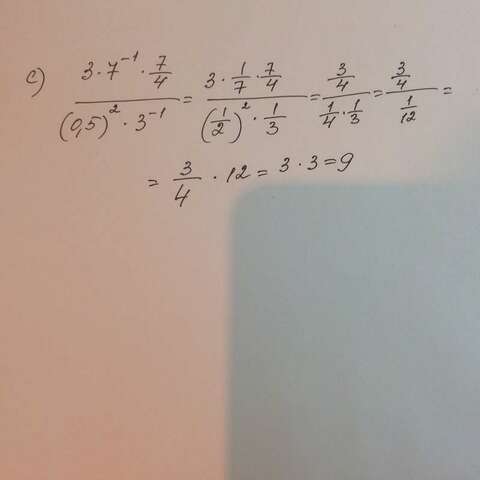 c) (3·7⁻¹·7/4)/((0,5)²·3⁻¹) = (3·1/7·7/4)/((1/2)²·1/3) = (3/4)/(1/4·1/3) = (3/4)/(1/12) =
= 3/4 · 12 = 3·3 = 9